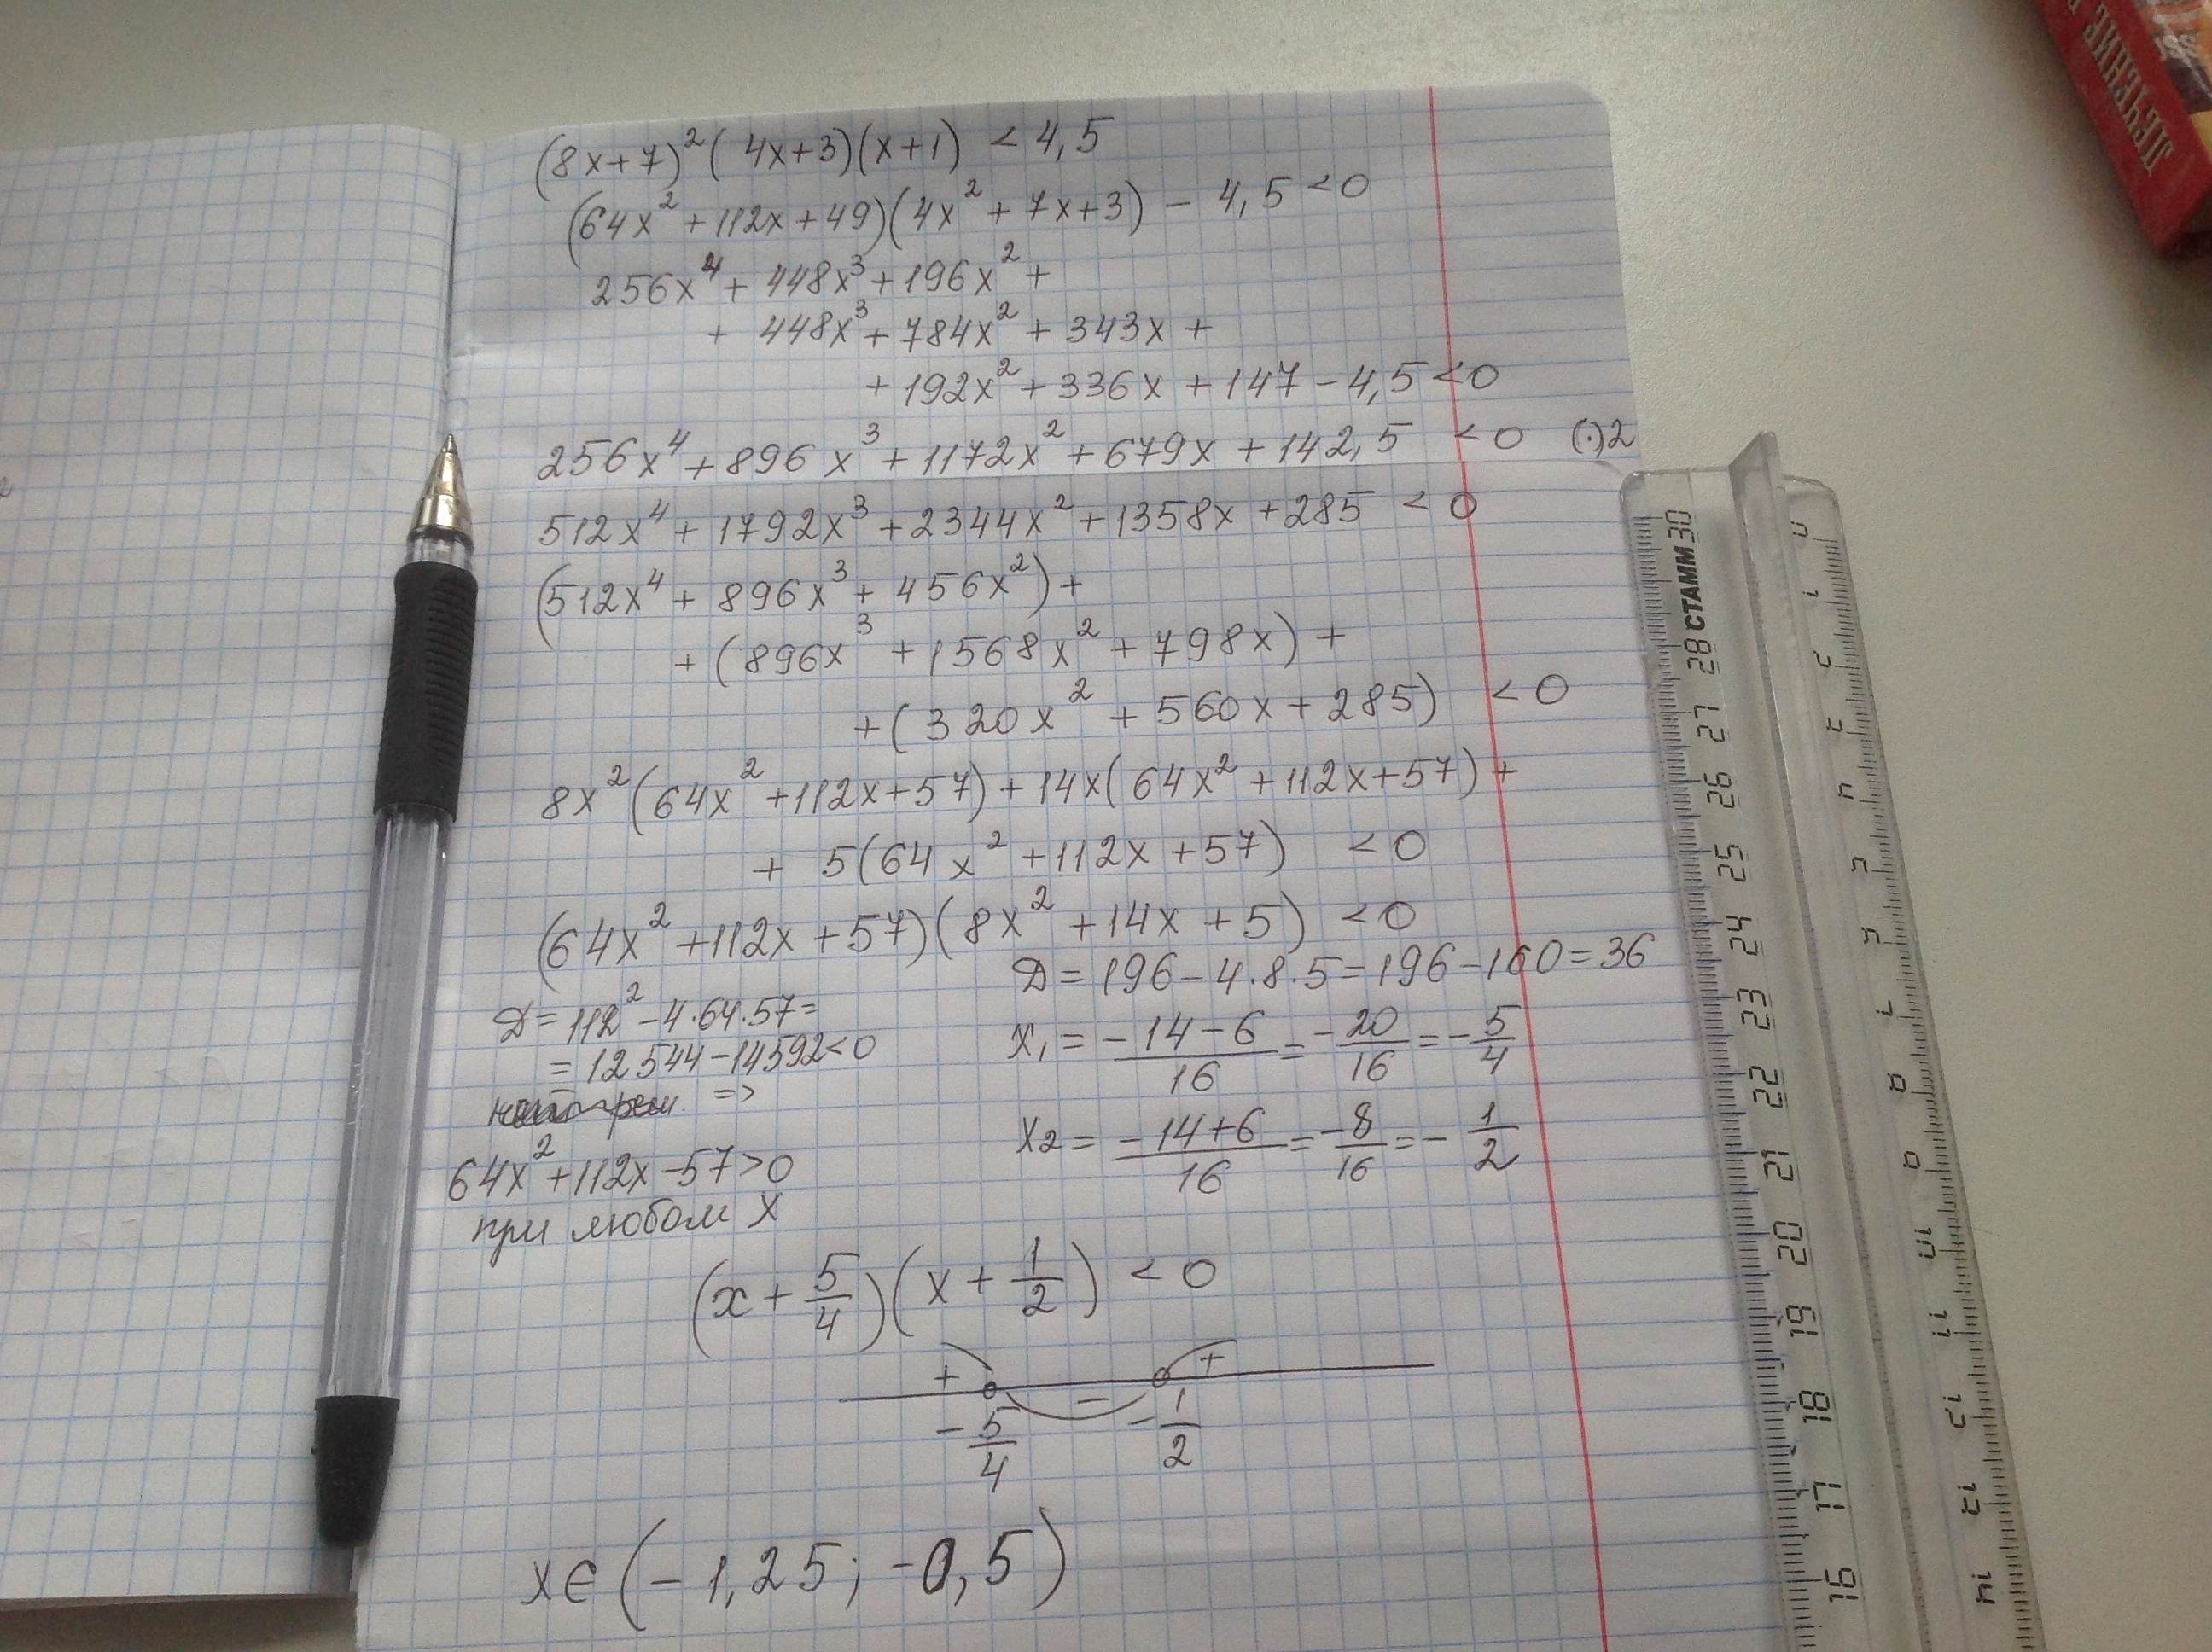 (8x+7)²(4x+3)(x+1) < 4,5
(64x²+112x+49)(4x²+7x+3) - 4,5 < 0
256x⁴+448x³+196x²+
+ 448x³+784x²+343x+
+192x²+336x+147-4,5<0
256x⁴+896x³+1172x²+679x+142,5 < 0 (·)2
512x⁴+1792x³+2344x²+1358x+285 < 0
(512x⁴+896x³+456x²)+
+(896x³+1568x²+798x)+
+(320x²+560x+285) < 0
8x²(64x²+112x+57)+14x(64x²+112x+57)+
+ 5(64x²+112x+57) < 0
(64x²+112x+57)(8x²+14x+5) < 0
D=196-4·8·5=196-160=36
D=112²-4·64·57=
=12544-14592<0
=>
64x²+112x-57>0
при любом x
x₁ = (-14-6)/16 = -20/16 = -5/4
x₂ = (-14+6)/16 = -8/16 = -1/2
(x+5/4)(x+1/2) < 0
+ - +
-5/4 -1/2
x∈(-1,25; -0,5)
СТАММ
30 28 27 26 25 24 23 22 21 20 19 18 17 16
ПЕЧЕНИЕ